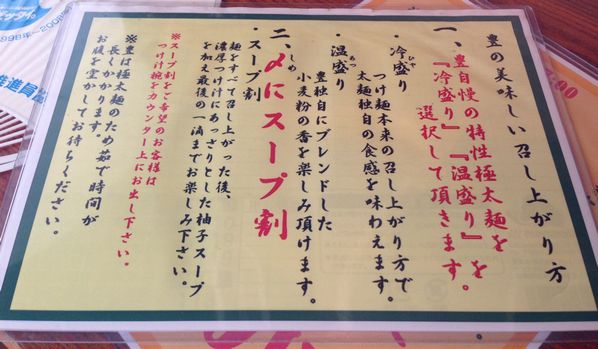 豊の美味しい召し上がり方
一、豊自慢の特性極太麺を
『冷盛り』『温盛り』を
選択して頂きます。
・冷盛り
ひや
つけ麺本来の召し上がり方で
太麺独自の食感を味わえます。
・温盛り
あつ
豊独自にブレンドした
小麦粉の香を楽しみ頂けます。
二、〆にスープ割
しめ
・スープ割
麺をすべて召し上がった後、
濃厚つけ汁にあっさりとした柚子スープ
を加え最後の一滴までお楽しみ下さい。
※スープ割をご希望のお客様は
つけ椀をカウンター上にお出し下さい。
※豊は極太麺のため茹で時間が
長くかかります。
お腹を空かしてお待ちください。
1998年~2008
推進員